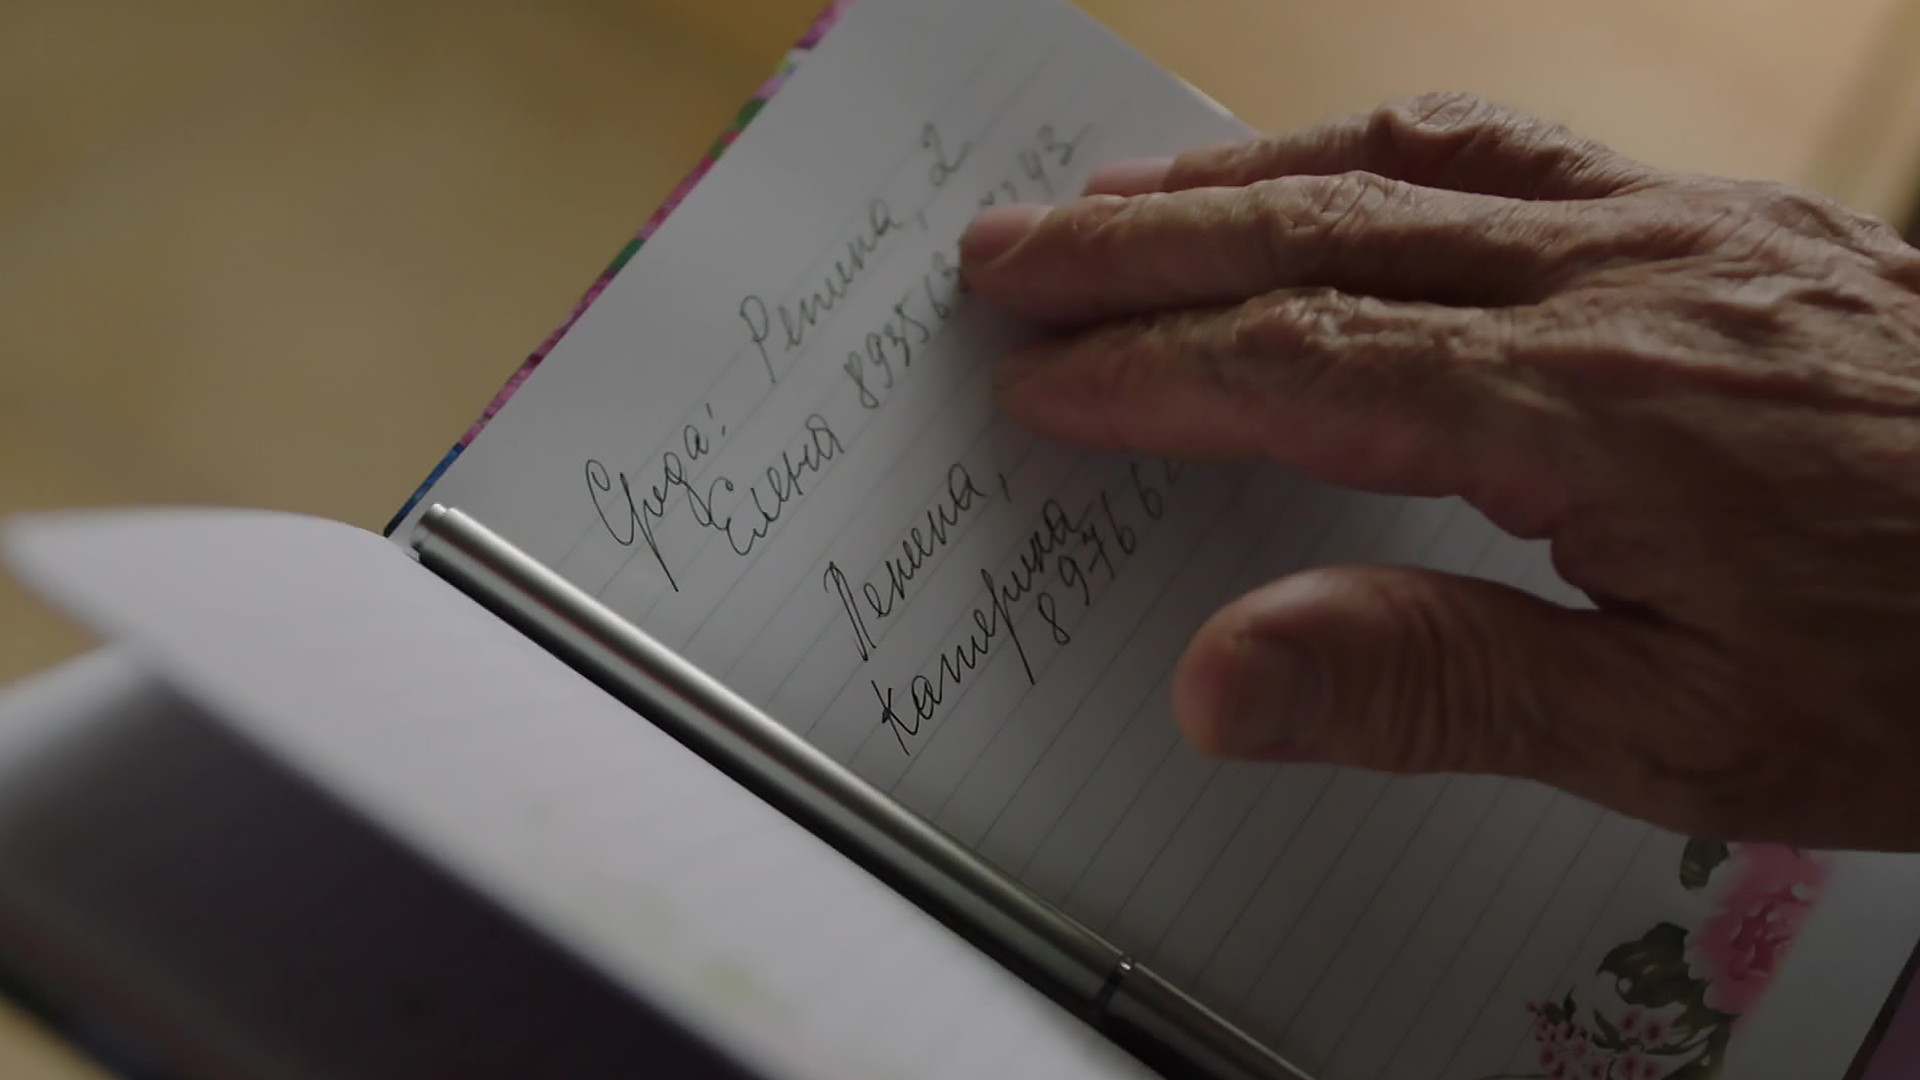 Среда! Репина, 2
Елена 8935 63 43
Ленина,
Катерина
8976 6